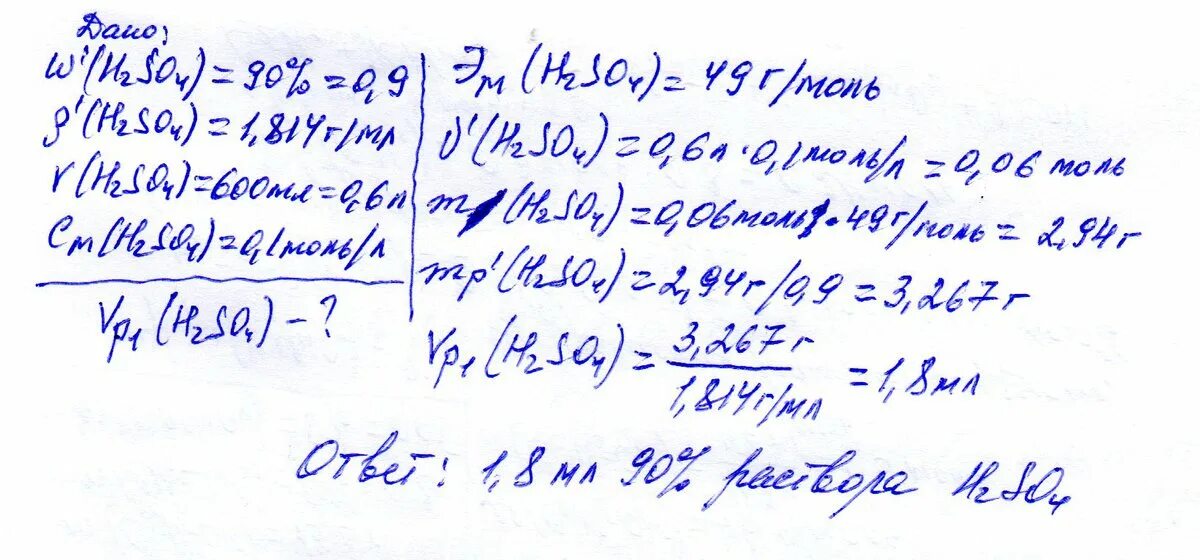 Дано:
ω'(H₂SO₄) = 90% = 0,9
ρ'(H₂SO₄) = 1,814 г/мл
V(H₂SO₄) = 600 мл = 0,6 л
Cм(H₂SO₄) = 0,1 моль/л
Vp₁(H₂SO₄) - ?
Эм(H₂SO₄) = 49 г/моль
ν'(H₂SO₄) = 0,6 л · 0,1 моль/л = 0,06 моль
m(H₂SO₄) = 0,06 моль · 49 г/моль = 2,94 г
mр'(H₂SO₄) = 2,94 г/0,9 = 3,267 г
Vp₁(H₂SO₄) = 3,267 г / 1,814 г/мл = 1,8 мл
Ответ: 1,8 мл 90% раствора H₂SO₄